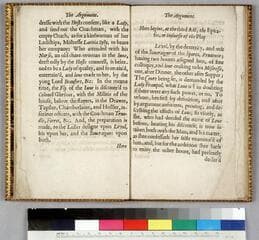 The Argument.
dresse with the Hests consent, like a Lady,
and send out the Coachman, with the
empty Coach, as for a kinswoman of her
Ladiships, Mistresse Lætitia Sylly, to bear
her company: Who attended with his
Nurse, an old chare-woman in the Inne,
drest odly by the Hosts counsell, is beleev'd
to be a Lady of quality, and so receiv'd,
entertain'd, and love made to her, by the
young Lord Beaufort, &c. In the meane
time, the Fly of the Inne is discover'd to
Colonel Glorious, with the Militia of the
house, below the stairs, in the Drawer,
Tapster, Chamberlaine, and Hostler, in-
feriour officers; with the Coachman Trun-
dle, Ferret, &c. And, the preparation is
made, to the Ladies designe upon Lovel,
his upon her, and the Soveraignes upon
both.
Here
The Argument.
Here begins, at the third Act, the Epita-
sis, or businesse of the Play.
Lovel, by the dexterity, and wit
of the Soveraigne of the Sports, Prudence;
having two houres assign'd him, of free
colloquy, and love-making to his Mistresse,
one, after Dinner, the other after Supper;
The Court being set, is demanded by the
Lady Frampul, what Love is? as doubting
if there were any such power, or no. To
whom, hee first by definition, and after
by argument answers; proving, and des-
cribing the effects of Love, so vively, as
she, who had derided the name of Love
before, hearing his discourse, is now so
taken both with the Man, and his matter,
as shee confesseth her selfe enamour'd of
him, and, but for the ambition shee hath
to enjoy the other houre, had presently
declar'd